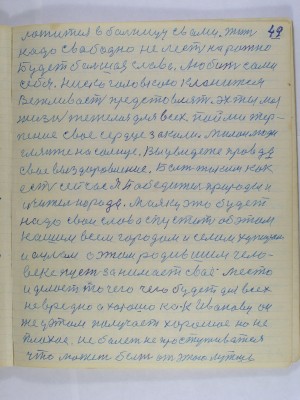 49
ложится в больницу с вами. Жить
надо свободно не лесть на рожно
Будет большая слава. Любить сами
себя. Низко головою кланяться
Вежливость представлять. эх ты моя
жизнь тяжелая для всех пойми тер-
пение свое сердце закали. Милая моя
гляже на солнце. Вы увидете правду
свое выздоровление. Быть таким как
есть сейчас Я Победитель природы и
учитель народа. Маяку это будет
надо свои слова спустить об этом
нашим всем городам и селам хуторам
и аулам о этом родившим чело-
веке пусть занимает свое место
и делает то чего чего будет для всех
не вредно а хорошо как Иванову он
же у этом получает хорошое но не
плохое. не болеть не простуживаться
что может быть от этого лутше